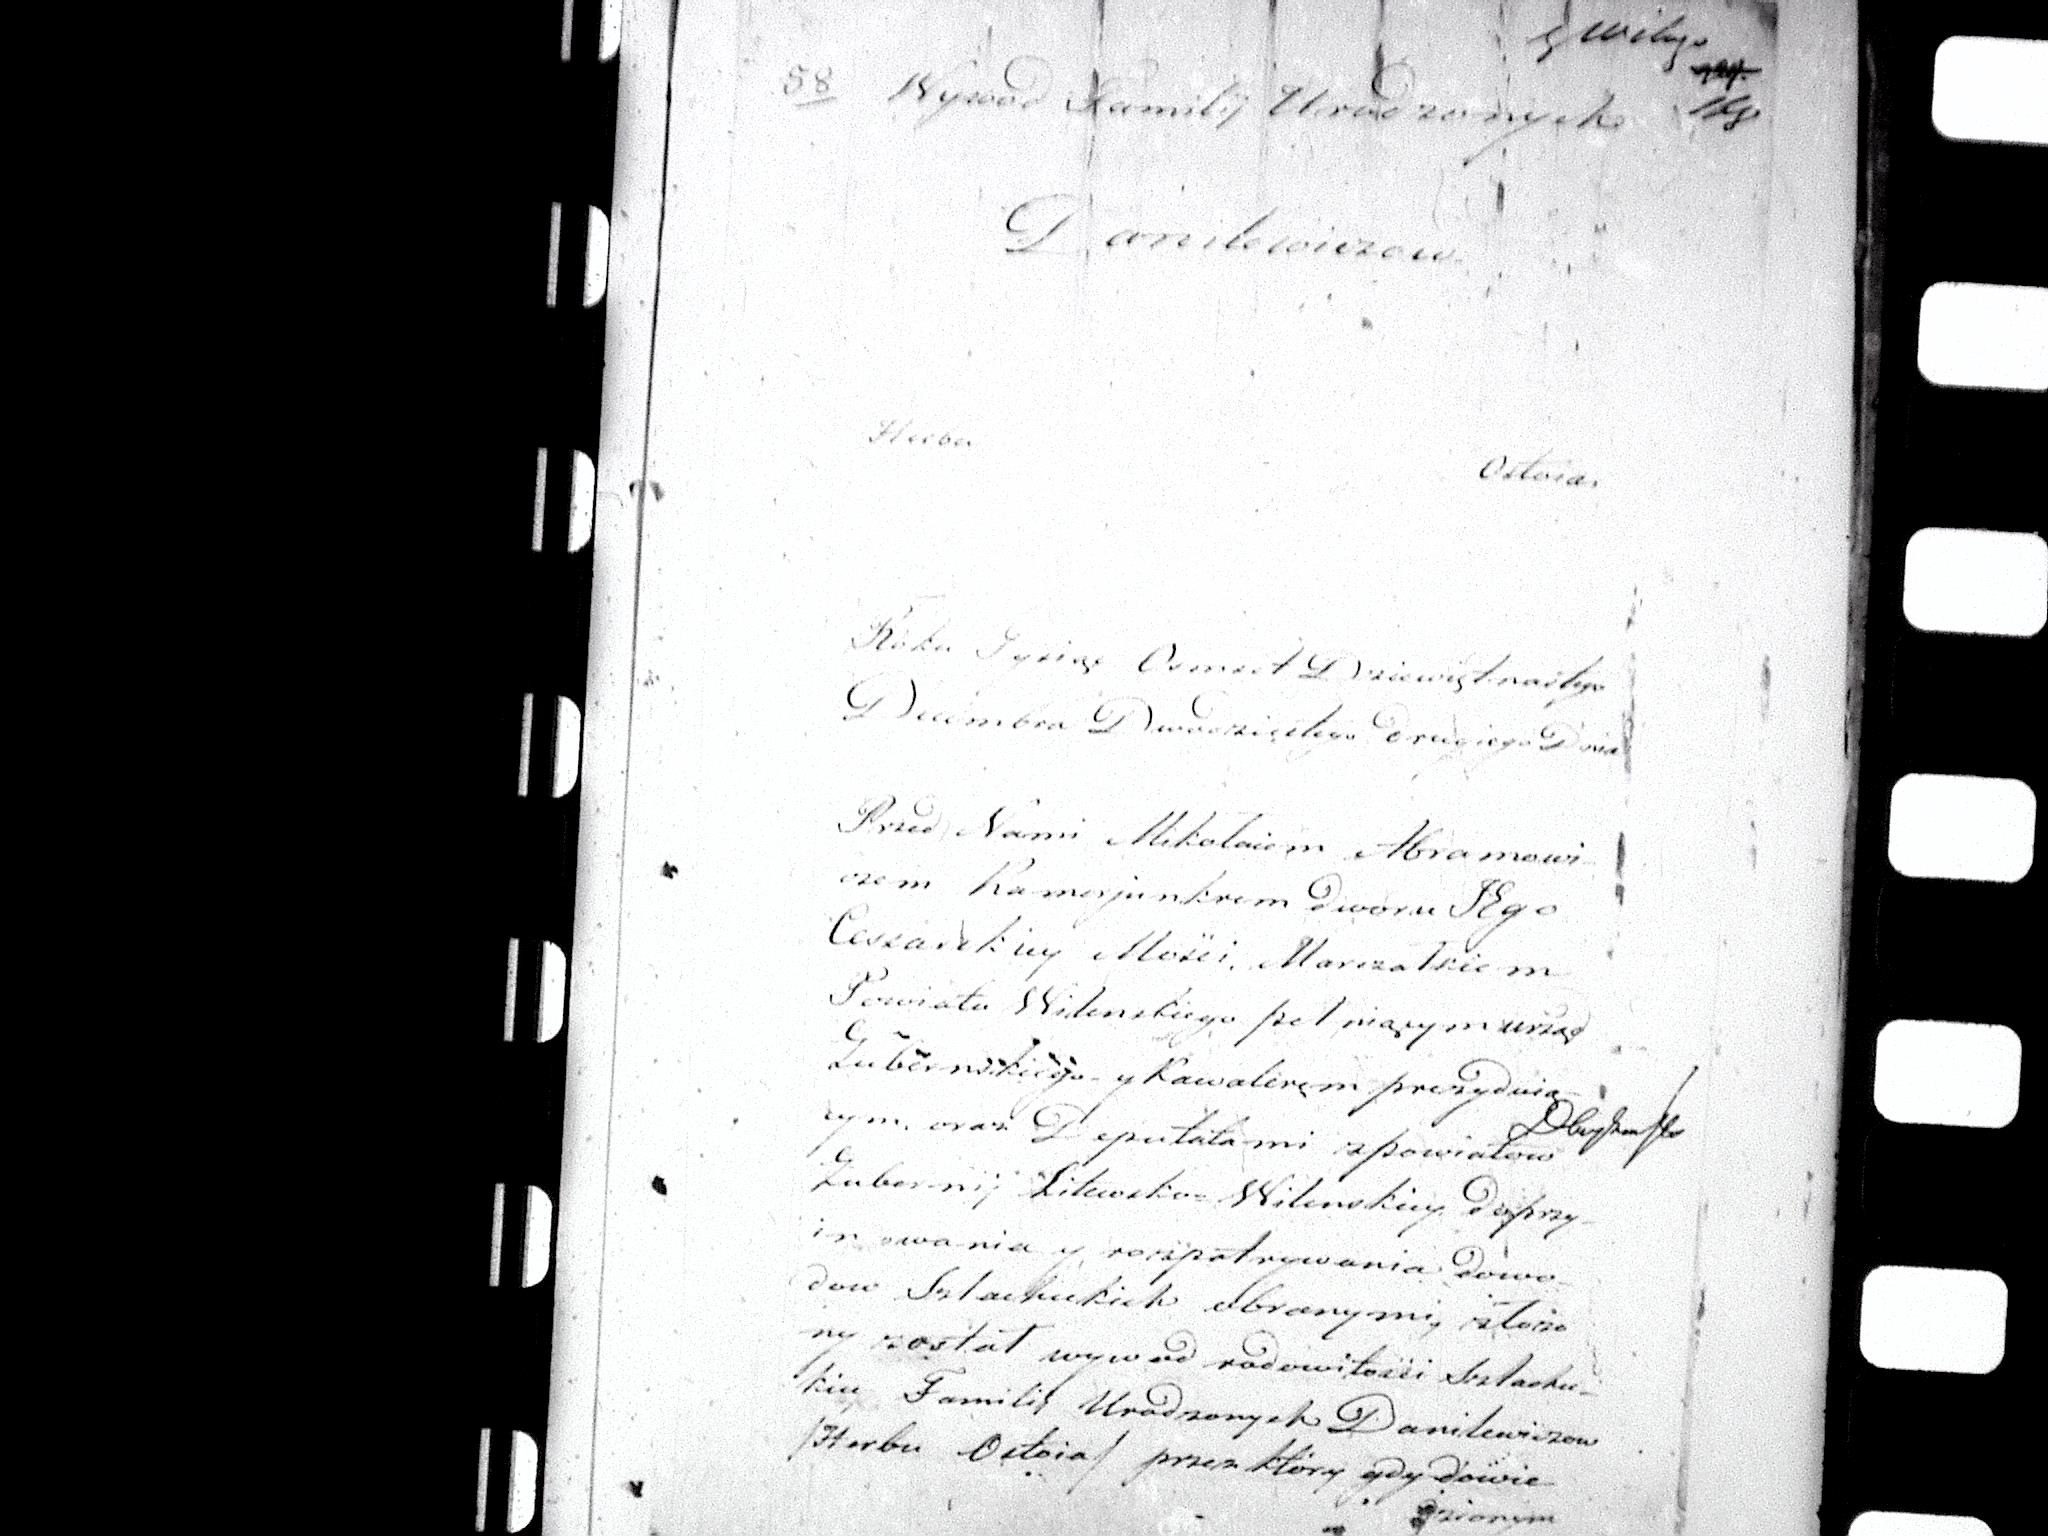 58 Wywod Familij Urodzonych
Danilewiczow
Herbu
Ostoia.
Roku Tysiąc Osmset Dziewiętnastego
Decembra Dwudziestego drugiego Dnia
Przed Nami Mikolaiem Abramowi-
czem Kamerjunkrem dworu JEgo
Cesarskiey Mości, Marszałkiem
Powiatu Wilenskiego pełniącym urząd
Gubernskiego y Kawalerem prezyduią-
cym, oraz Deputatami z powiatow
Gubernij Litewsko-Wilenskiey do przy-
imowania y rozpatrywania dowo-
dow Szlacheckich obranymi, złożo
ny został wywod rodowitości Szlachec-
kiey Familij Urodzonych Danilewiczow
/Herbu Ostoia/ przez ktory gdy dowie
dzionym